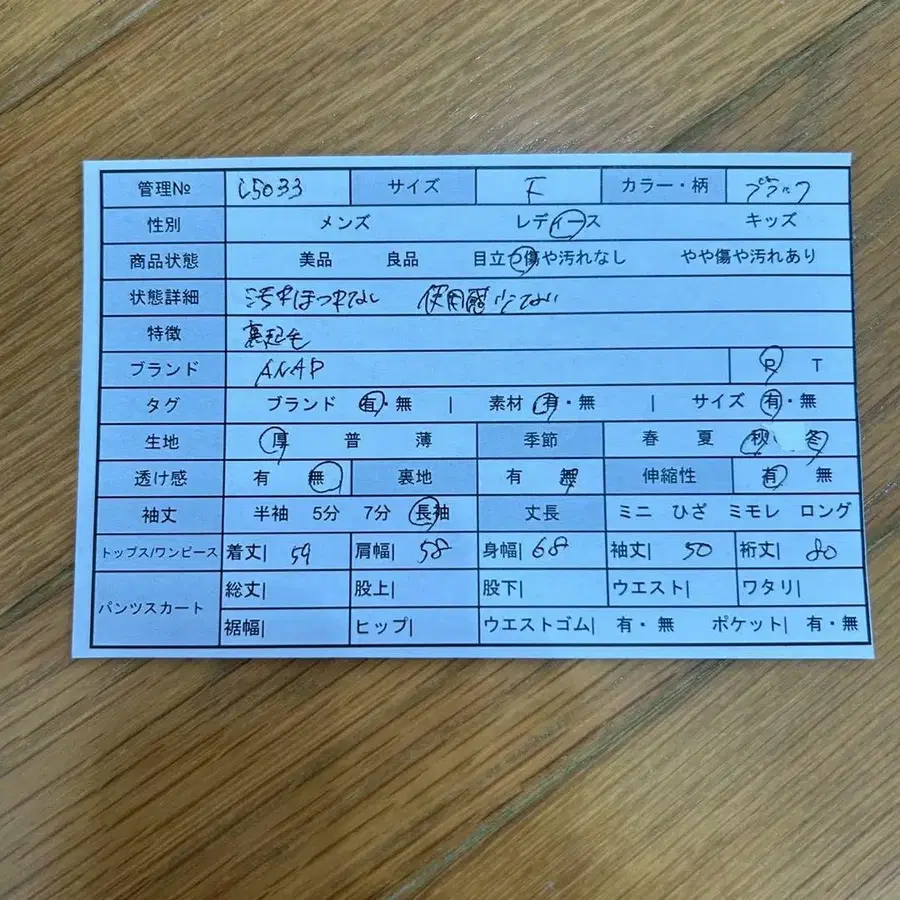 管理№ L5033 サイズ F カラー・柄 ブラック
性別 メンズ レディース キッズ
商品状態 美品 良品 目立つ傷や汚れなし やや傷や汚れあり
状態詳細 汚れほつれなし 使用感少ない
特徴 裏起毛
ブランド ANAP R T
タグ ブランド 有・無 | 素材 有・無 | サイズ 有・無
生地 厚 普 薄 季節 春 夏 秋 冬
透け感 有 無 裏地 有 無 伸縮性 有 無
袖丈 半袖 5分 7分 長袖 丈長 ミニ ひざ ミモレ ロング
トップス/ワンピース 着丈| 59 肩幅| 58 身幅| 68 袖丈| 50 裄丈| 80
パンツスカート 総丈| 股上| 股下| ウエスト| ワタリ|
裾幅| ヒップ| ウエストゴム| 有・無 ポケット| 有・無